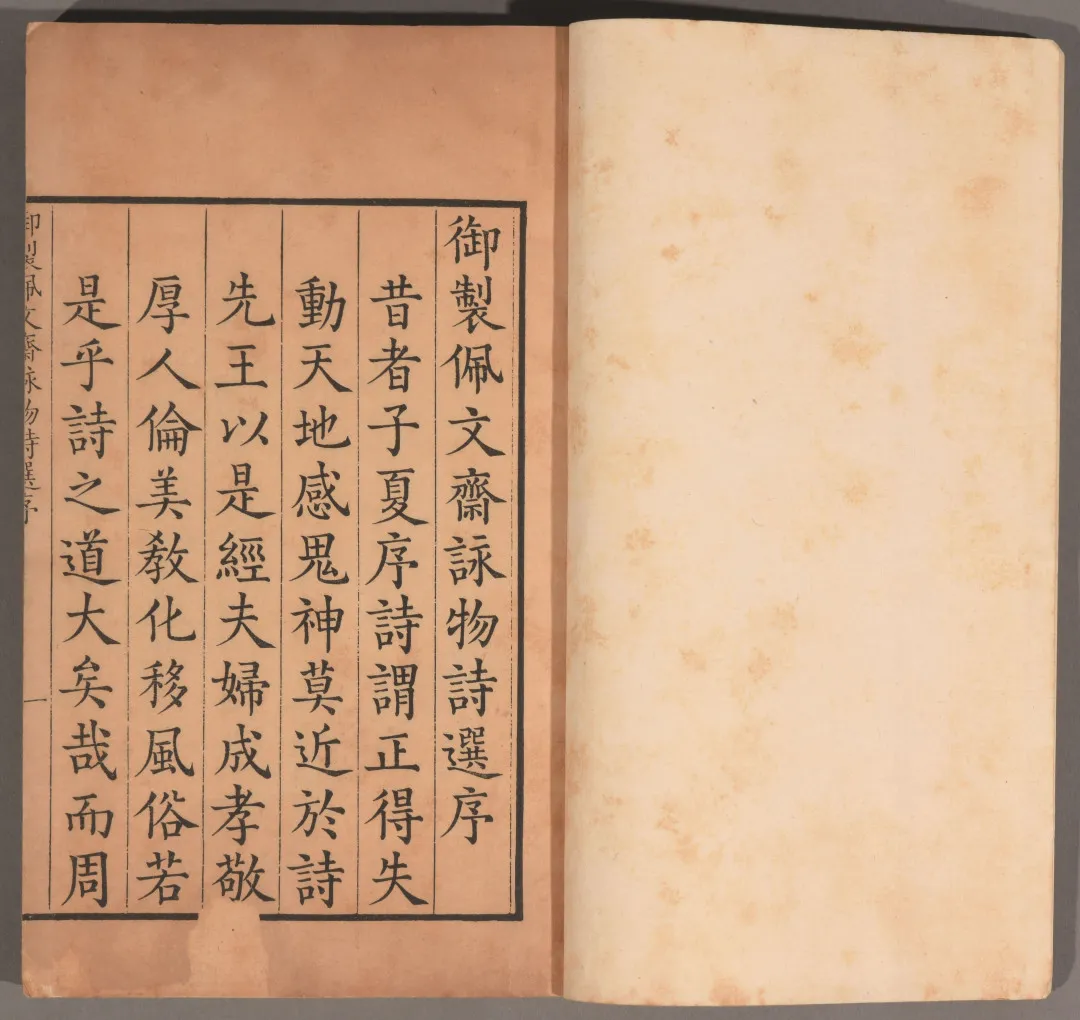 御製佩文齋詠物詩選序
昔者子夏序詩謂正得失
動天地感鬼神莫近於詩
先王以是經夫婦成孝敬
厚人倫美教化移風俗若
是乎詩之道大矣哉而周
御製佩文齋詠物詩選序
一